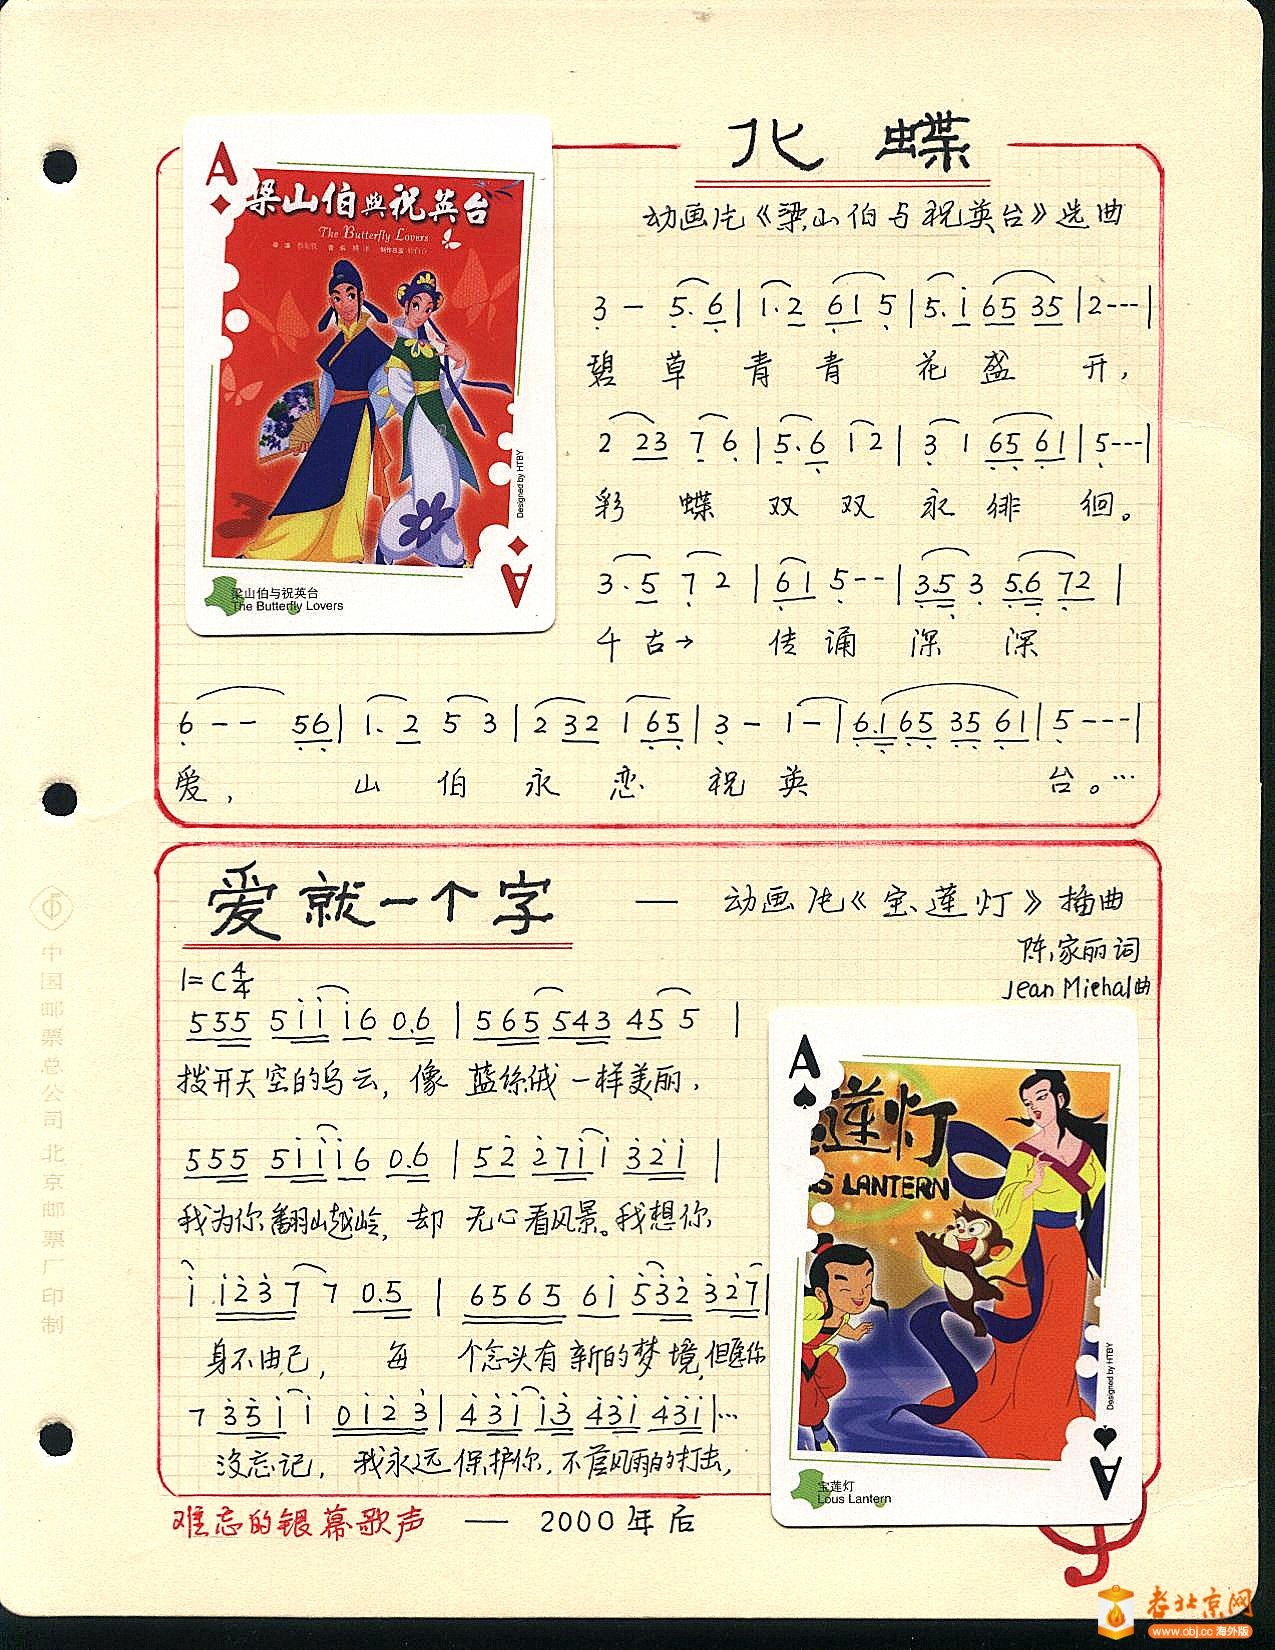 化蝶
动画片《梁山伯与祝英台》选曲
A
梁山伯與祝英台
The Butterfly Lovers
Designed by HTBY
A
梁山伯与祝英台
The Butterfly Lovers
3 — 5. 6 | 1. 2 6 1 5 | 5. i 6 5 3 5 | 2 - - - |
碧草青青花盛开,
2 2 3 7 6 | 5. 6 1 2 | 3 1 6 5 6 1 | 5 - - - |
彩蝶双双永徘徊。
3. 5 7 2 | 6 1 5 - - | 3. 5 3 5. 6 7 2 |
千古→传诵深深
6 - - 5 6 | 1. 2 5 3 | 2 3 2 1 6 5 | 3 - 1 - | 6. 1 6 5 3 5 6 1 | 5 - - - |
爱,山伯永恋祝英台。…
爱就一个字 — 动画片《宝莲灯》插曲
陈家丽词
Jean Miehal曲
1=C 4/4
5 5 5 5 i i i 6 0. 6 | 5 6 5 5 4 3 4 5 5 |
拨开天空的乌云,像蓝丝绒一样美丽,
5 5 5 5 i i i 6 0. 6 | 5 2 2 7 i i 3 2 i |
我为你翻山越岭,却无心看风景。我想你
i i 2 3 7 7 0. 5 | 6 5 6 5 6 i 5 3 2 3 2 7 |
身不由己,每个念头有新的梦境,但愿你
7 3 5 i i 0 i 2 3 | 4 3 i i 3 4 3 i 4 3 i | …
没忘记,我永远保护你,不管风雨的打击,
A
莲灯
LANTERN
Designed by HTBY
A
宝莲灯
Lous Lantern
难忘的银幕歌声 — 2000年后
中国邮票总公司北京邮票厂印制
老北京网
www.obj.cc 海外版